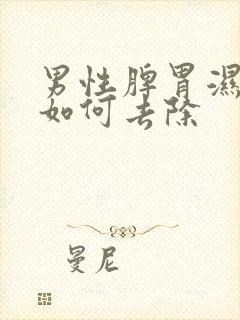 男性脾胃濕
如何去除
曼尼